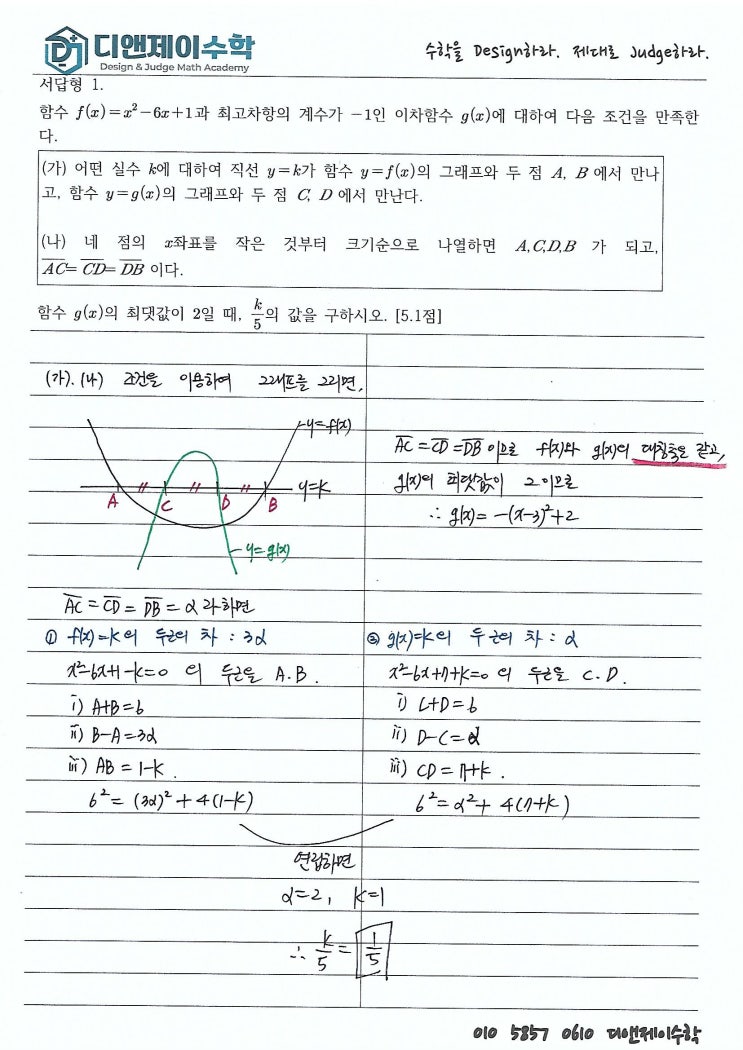 디앤제이수학
Design & Judge Math Academy
수학을 Design하라. 제대로 Judge하라.
서답형 1.
함수 f(x)=x²-6x+1과 최고차항의 계수가 -1인 이차함수 g(x)에 대하여 다음 조건을 만족한
다.
(가) 어떤 실수 k에 대하여 직선 y=k가 함수 y=f(x)의 그래프와 두 점 A, B에서 만나
고, 함수 y=g(x)의 그래프와 두 점 C, D에서 만난다.
(나) 네 점의 x좌표를 작은 것부터 크기순으로 나열하면 A,C,D,B 가 되고,
A̅C̅= C̅D̅= D̅B̅ 이다.
함수 g(x)의 최댓값이 2일 때, k/5의 값을 구하시오. [5.1점]
(가). (나) 조건을 이용하여 그래프를 그리면,
y=f(x)
A C D B y=k
y=g(x)
A̅C̅=C̅D̅=D̅B̅ 이므로 f(x)와 g(x)의 대칭축은 같고,
g(x)의 최댓값이 2이므로
∴ g(x)= -(x-3)²+2
A̅C̅=C̅D̅=D̅B̅=α 라 하면
① f(x)=k의 두근의 차 : 3α
x²-6x+1-k=0 의 두근을 A.B.
i) A+B=6
ii) B-A=3α
iii) AB=1-k.
6²=(3α)²+4(1-k)
② g(x)=k의 두근의 차 : α
x²-6x+7+k=0 의 두근을 C.D.
i) C+D=6
ii) D-C=α
iii) CD=7+k.
6²=α²+4(7+k)
연립하면
α=2, k=1
∴ k/5 = 1/5
010 5857 0610 디앤제이수학